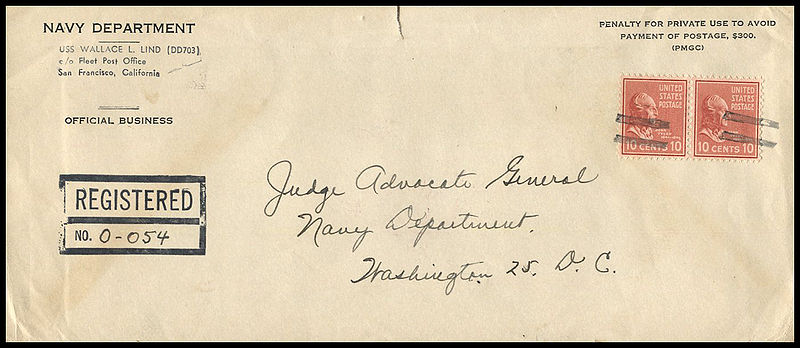 NAVY DEPARTMENT
USS WALLACE L. LIND (DD703)
c/o Fleet Post Office
San Francisco, California
OFFICIAL BUSINESS
PENALTY FOR PRIVATE USE TO AVOID
PAYMENT OF POSTAGE, $300.
(PMGC)
UNITED
STATES
POSTAGE
10 CENTS 10
UNITED
STATES
POSTAGE
10 CENTS 10
REGISTERED
NO. 0-054
Judge Advocate General
Navy Department.
Washington 25, D. C.